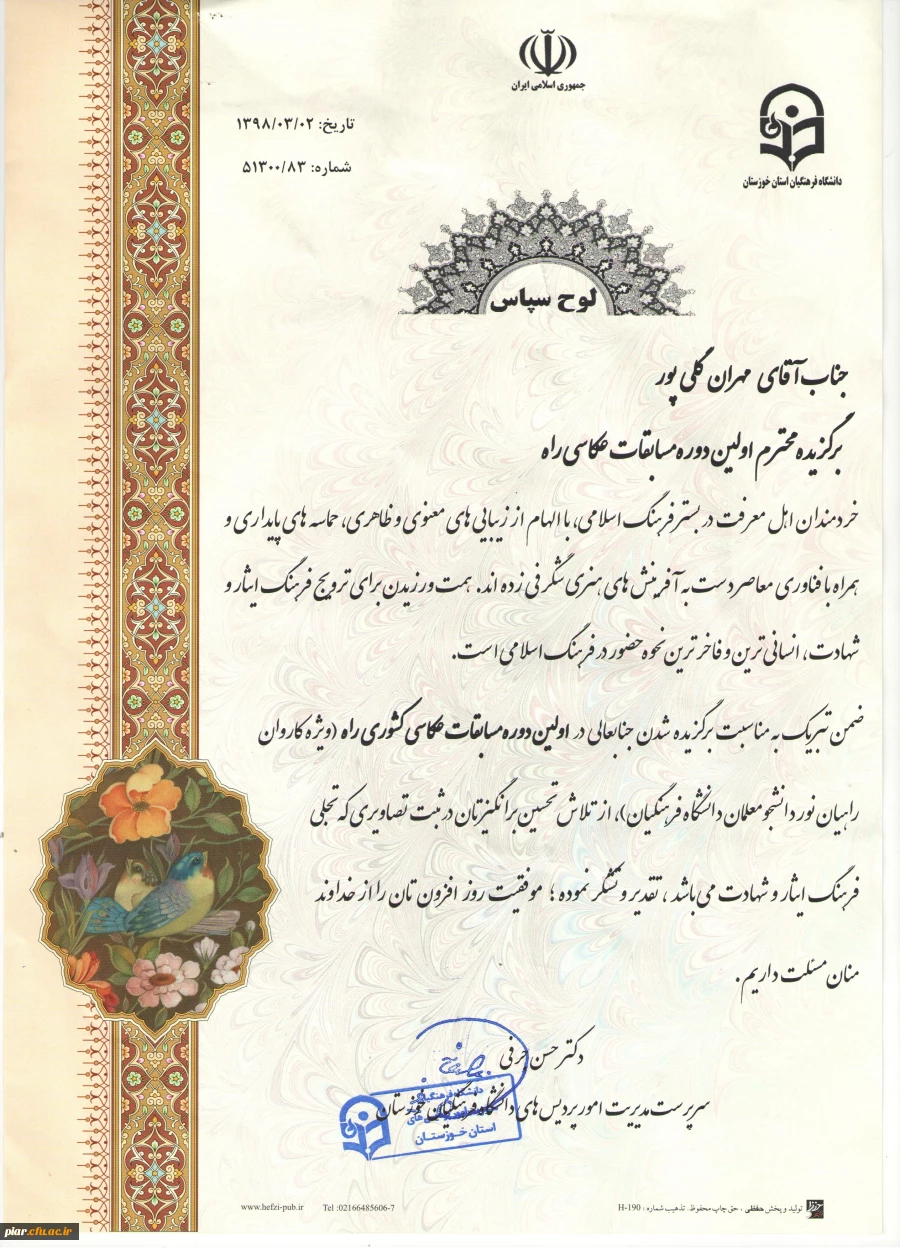 جمهوری اسلامی ایران
دانشگاه فرهنگیان استان خوزستان
تاریخ: ۱۳۹۸/۰۳/۰۲
شماره: ۵۱۳۰۰/۸۳
لوح سپاس
جناب آقای مهران گلی پور
برگزیده محترم اولین دوره مسابقات عکاسی راه
خردمندان اهل معرفت در بستر فرهنگ اسلامی، با الهام از زیبایی های معنوی و ظاهری، حماسه های پایداری و
همراه با فناوری معاصر دست به آفرینش های هنری شگرفی زده اند. همت ورزیدن برای ترویج فرهنگ ایثار و
شهادت، انسانی ترین و فاخر ترین نحوه حضور در فرهنگ اسلامی است.
ضمن تبریک به مناسبت برگزیده شدن جنابعالی در اولین دوره مسابقات عکاسی کشوری راه (ویژه کاروان
راهیان نور دانشجو معلمان دانشگاه فرهنگیان)، از تلاش تحسین برانگیزتان در ثبت تصاویری که تجلی
فرهنگ ایثار و شهادت می باشد، تقدیر و تشکر نموده؛ موفقیت روز افزون تان را از خداوند
منان مسئلت داریم.
دکتر حسن حرفی
سرپرست مدیریت امور پردیس های دانشگاه فرهنگیان خوزستان
دانشگاه فرهنگیان
استان خوزستان
تولید و پخش حفظی، حق چاپ محفوظ. تذهیب شماره: H-190
Tel :02166485606-7
www.hefzi-pub.ir
piar.cfu.ac.ir